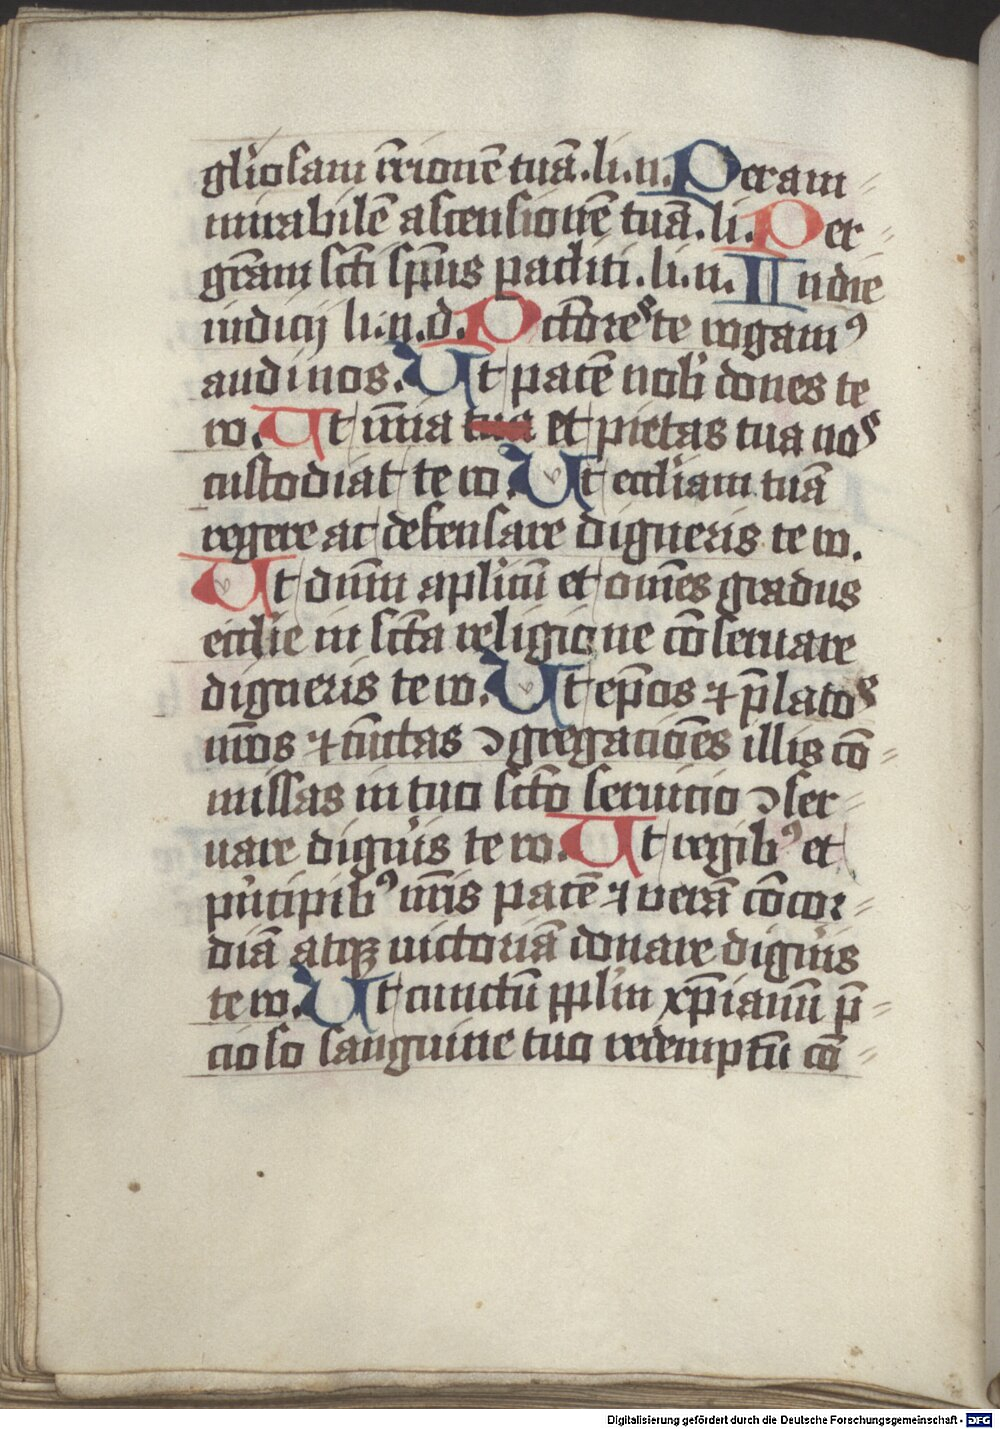 gl'iosam r̄r̄ionē tuā. li. n. Per am-
mirabilē ascensionē tuā. li. Per
gr̄am sc̄ti sp̄us paclìti. li. n. In die
iudicij li. n. d. Pctōres te rogam⁹
audi nos. Ut pacē nob' dones te
ro. Ut m̄ia tua et pietas tua nos
custodiat te ro. Ut eccl'iam tuā
regere ac defensare digneris te ro.
Ut dn̄m apl'icū et om̄es gradus
ecclie in sc̄ta religione cōseruare
digneris te ro. Ut ep̄os ⁊ p̄latos
nr̄os ⁊ cūctas ꝯgregaciōes illis cō-
missas in tuo sc̄to seruicio ꝯser-
uare dignis te ro. Ut regib⁹ et
p'ncipib⁹ nr̄is pacē ⁊ verā cōcor-
diā atqꝫ victoriā donare dignis
te ro. Ut cunctū ppl'm xp̄ianū p̄-
cioso sanguine tuo redemptū cō-
Digitalisierung gefördert durch die Deutsche Forschungsgemeinschaft - DFG